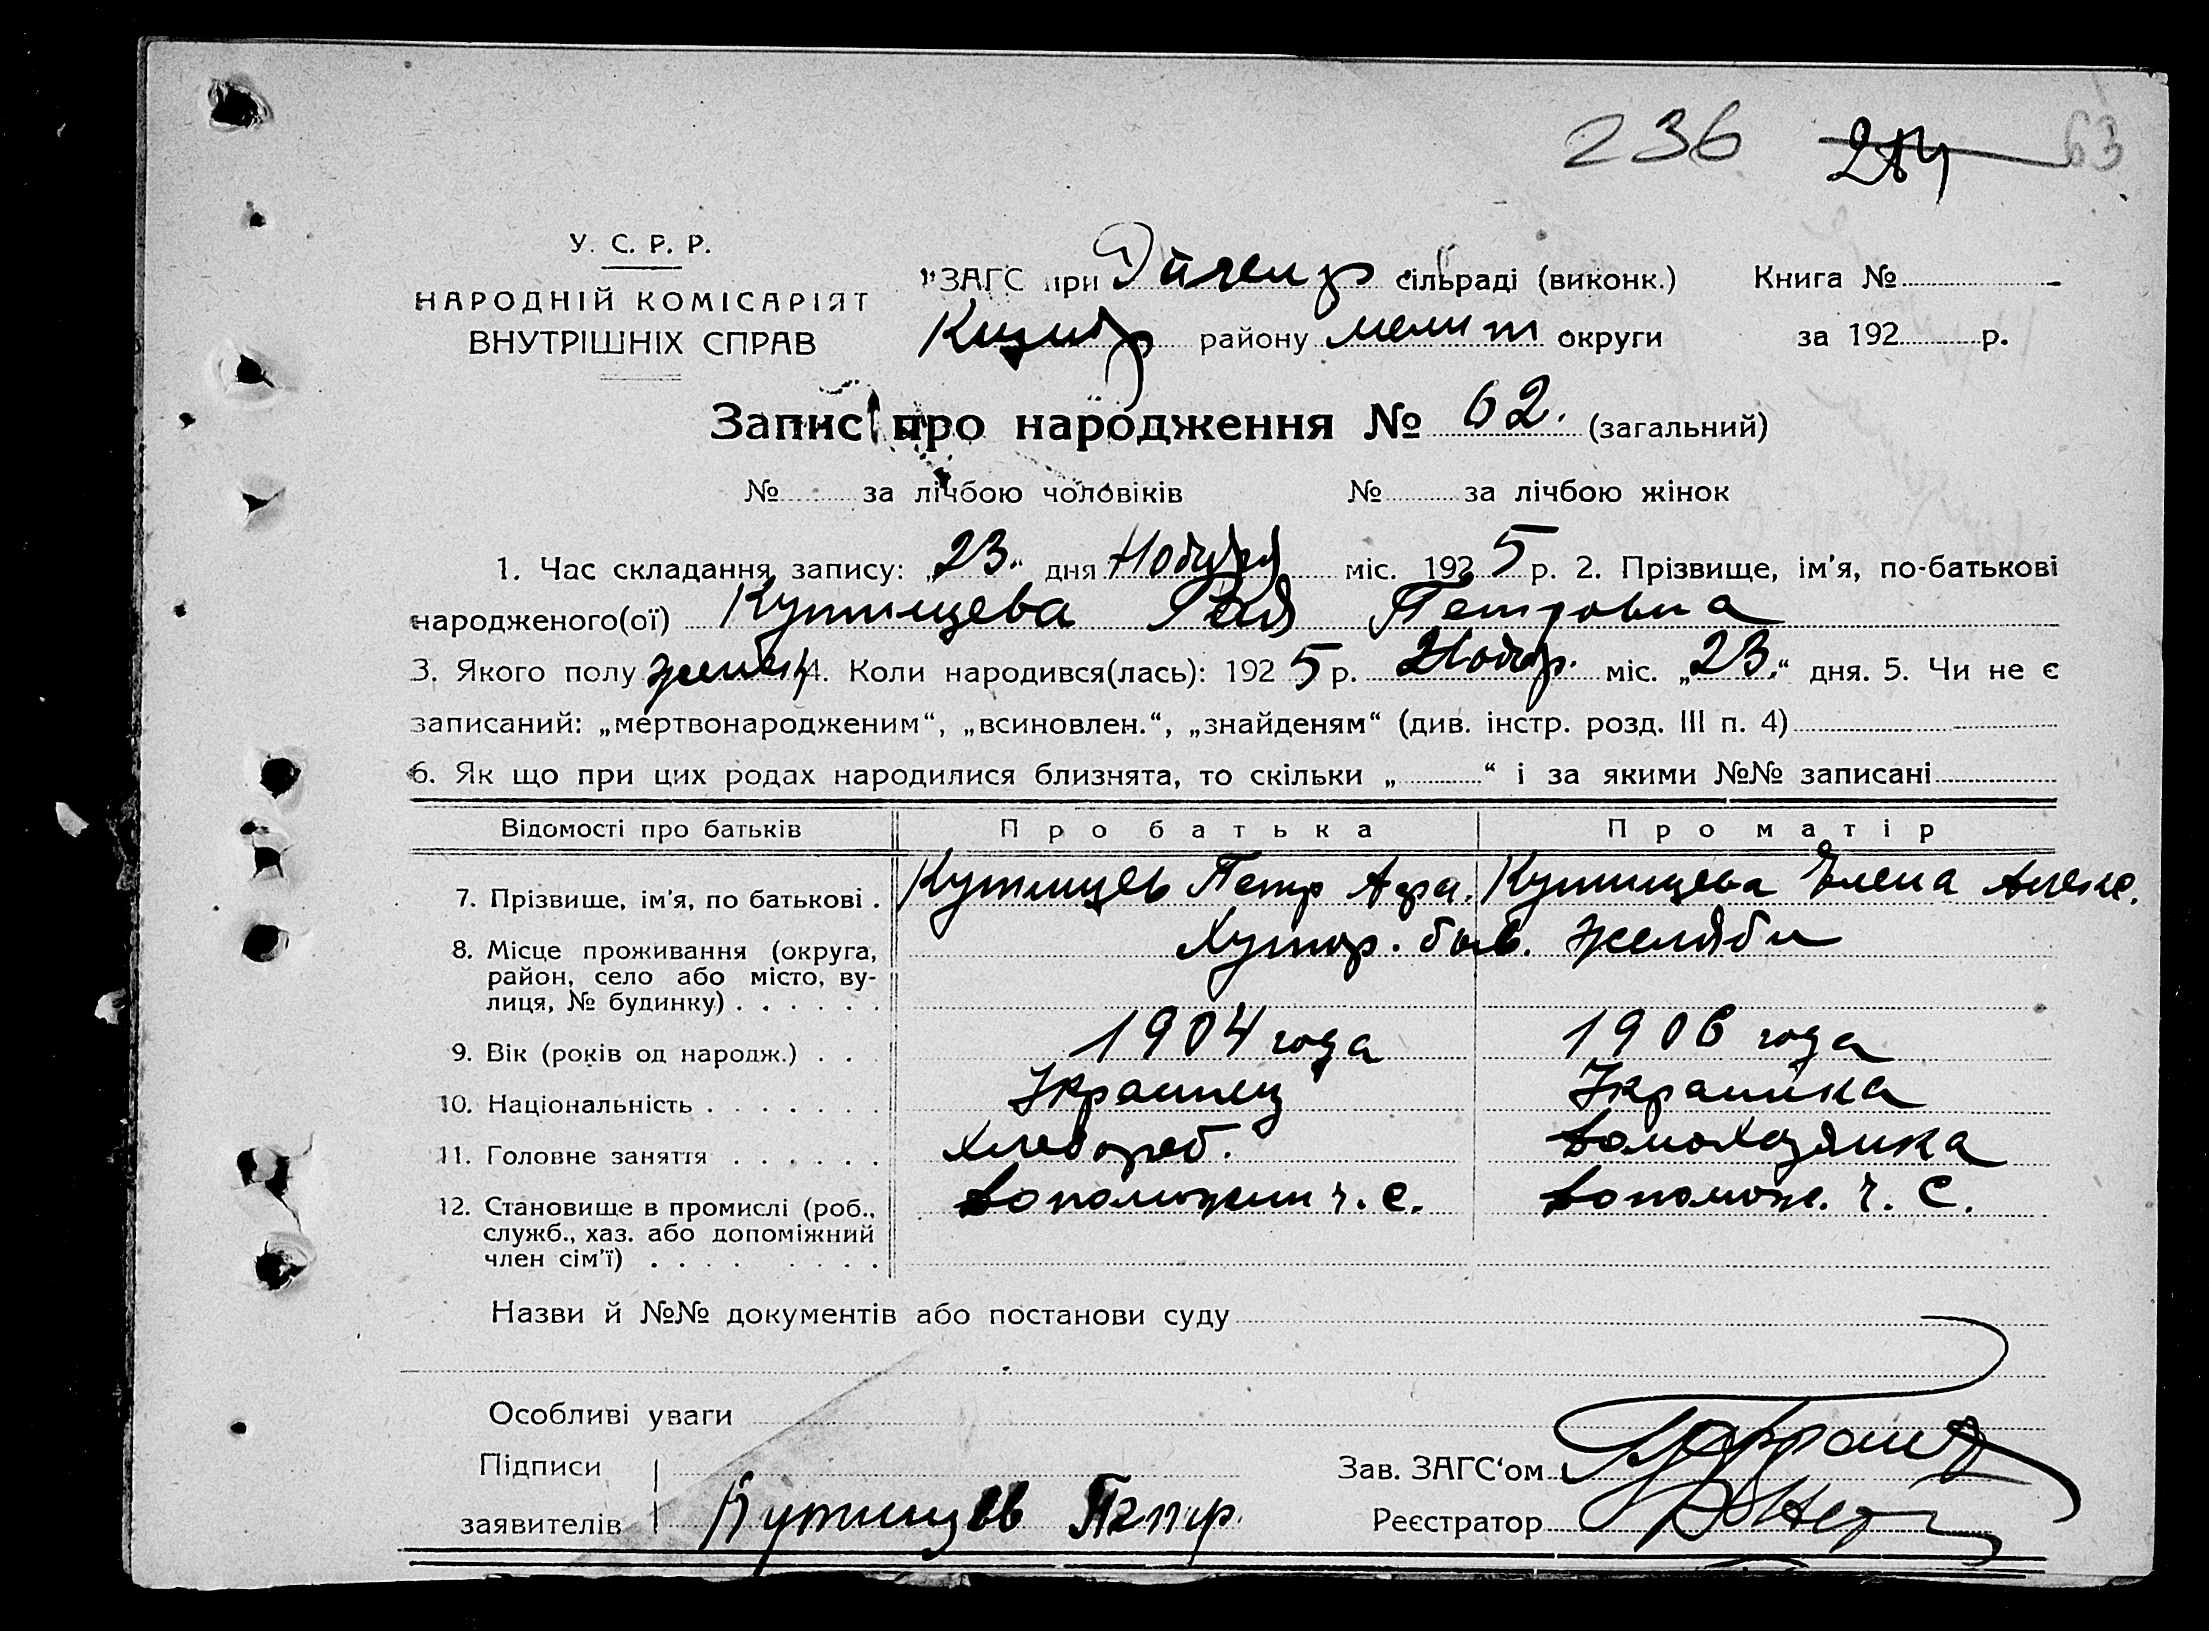 236 63
У. С. Р. Р.
НАРОДНІЙ КОМІСАРІЯТ
ВНУТРІШНІХ СПРАВ
ЗАГС при сільраді (виконк.) Книга №
району мелит округи за 192 р.
Запис про народження № 62. (загальний)
№ за лічбою чоловіків № за лічбою жінок
1. Час складання запису: „23.“ дня Ноября міс. 1925 р. 2. Прізвище, ім'я, по-батькові
народженого(ої) Кутищева Рая Петровна
3. Якого полу женск 4. Коли народився(лась): 1925 р. Ноябр. міс. „23.“ дня. 5. Чи не є
записаний: „мертвонародженим“, „всиновлен.“, „знайденям“ (див. інстр. розд. III п. 4)
6. Як що при цих родах народилися близнята, то скільки „ “ і за якими №№ записані
Відомості про батьків Про батька Про матір
7. Прізвище, ім'я, по батькові . Кутищев Петр Кутищева Елена Алекс.
8. Місце проживання (округа, Хутор. быв. Желяби
район, село або місто, ву-
лиця, № будинку) . . . . . .
9. Вік (років од народж.) . . 1904 года 1906 года
10. Національність . . . . . . . Украинец Украинка
11. Головне заняття . . . . . . Хлебороб. домохозяйка
12. Становище в промислі (роб., допоможин ч. с. допомож. ч. с.
служб., хаз. або допоміжний
член сім'ї) . . . . . . . .
Назви й №№ документів або постанови суду
Особливі уваги
Підписи Зав. ЗАГС'ом
заявителів Кутищев Петр Реєстратор